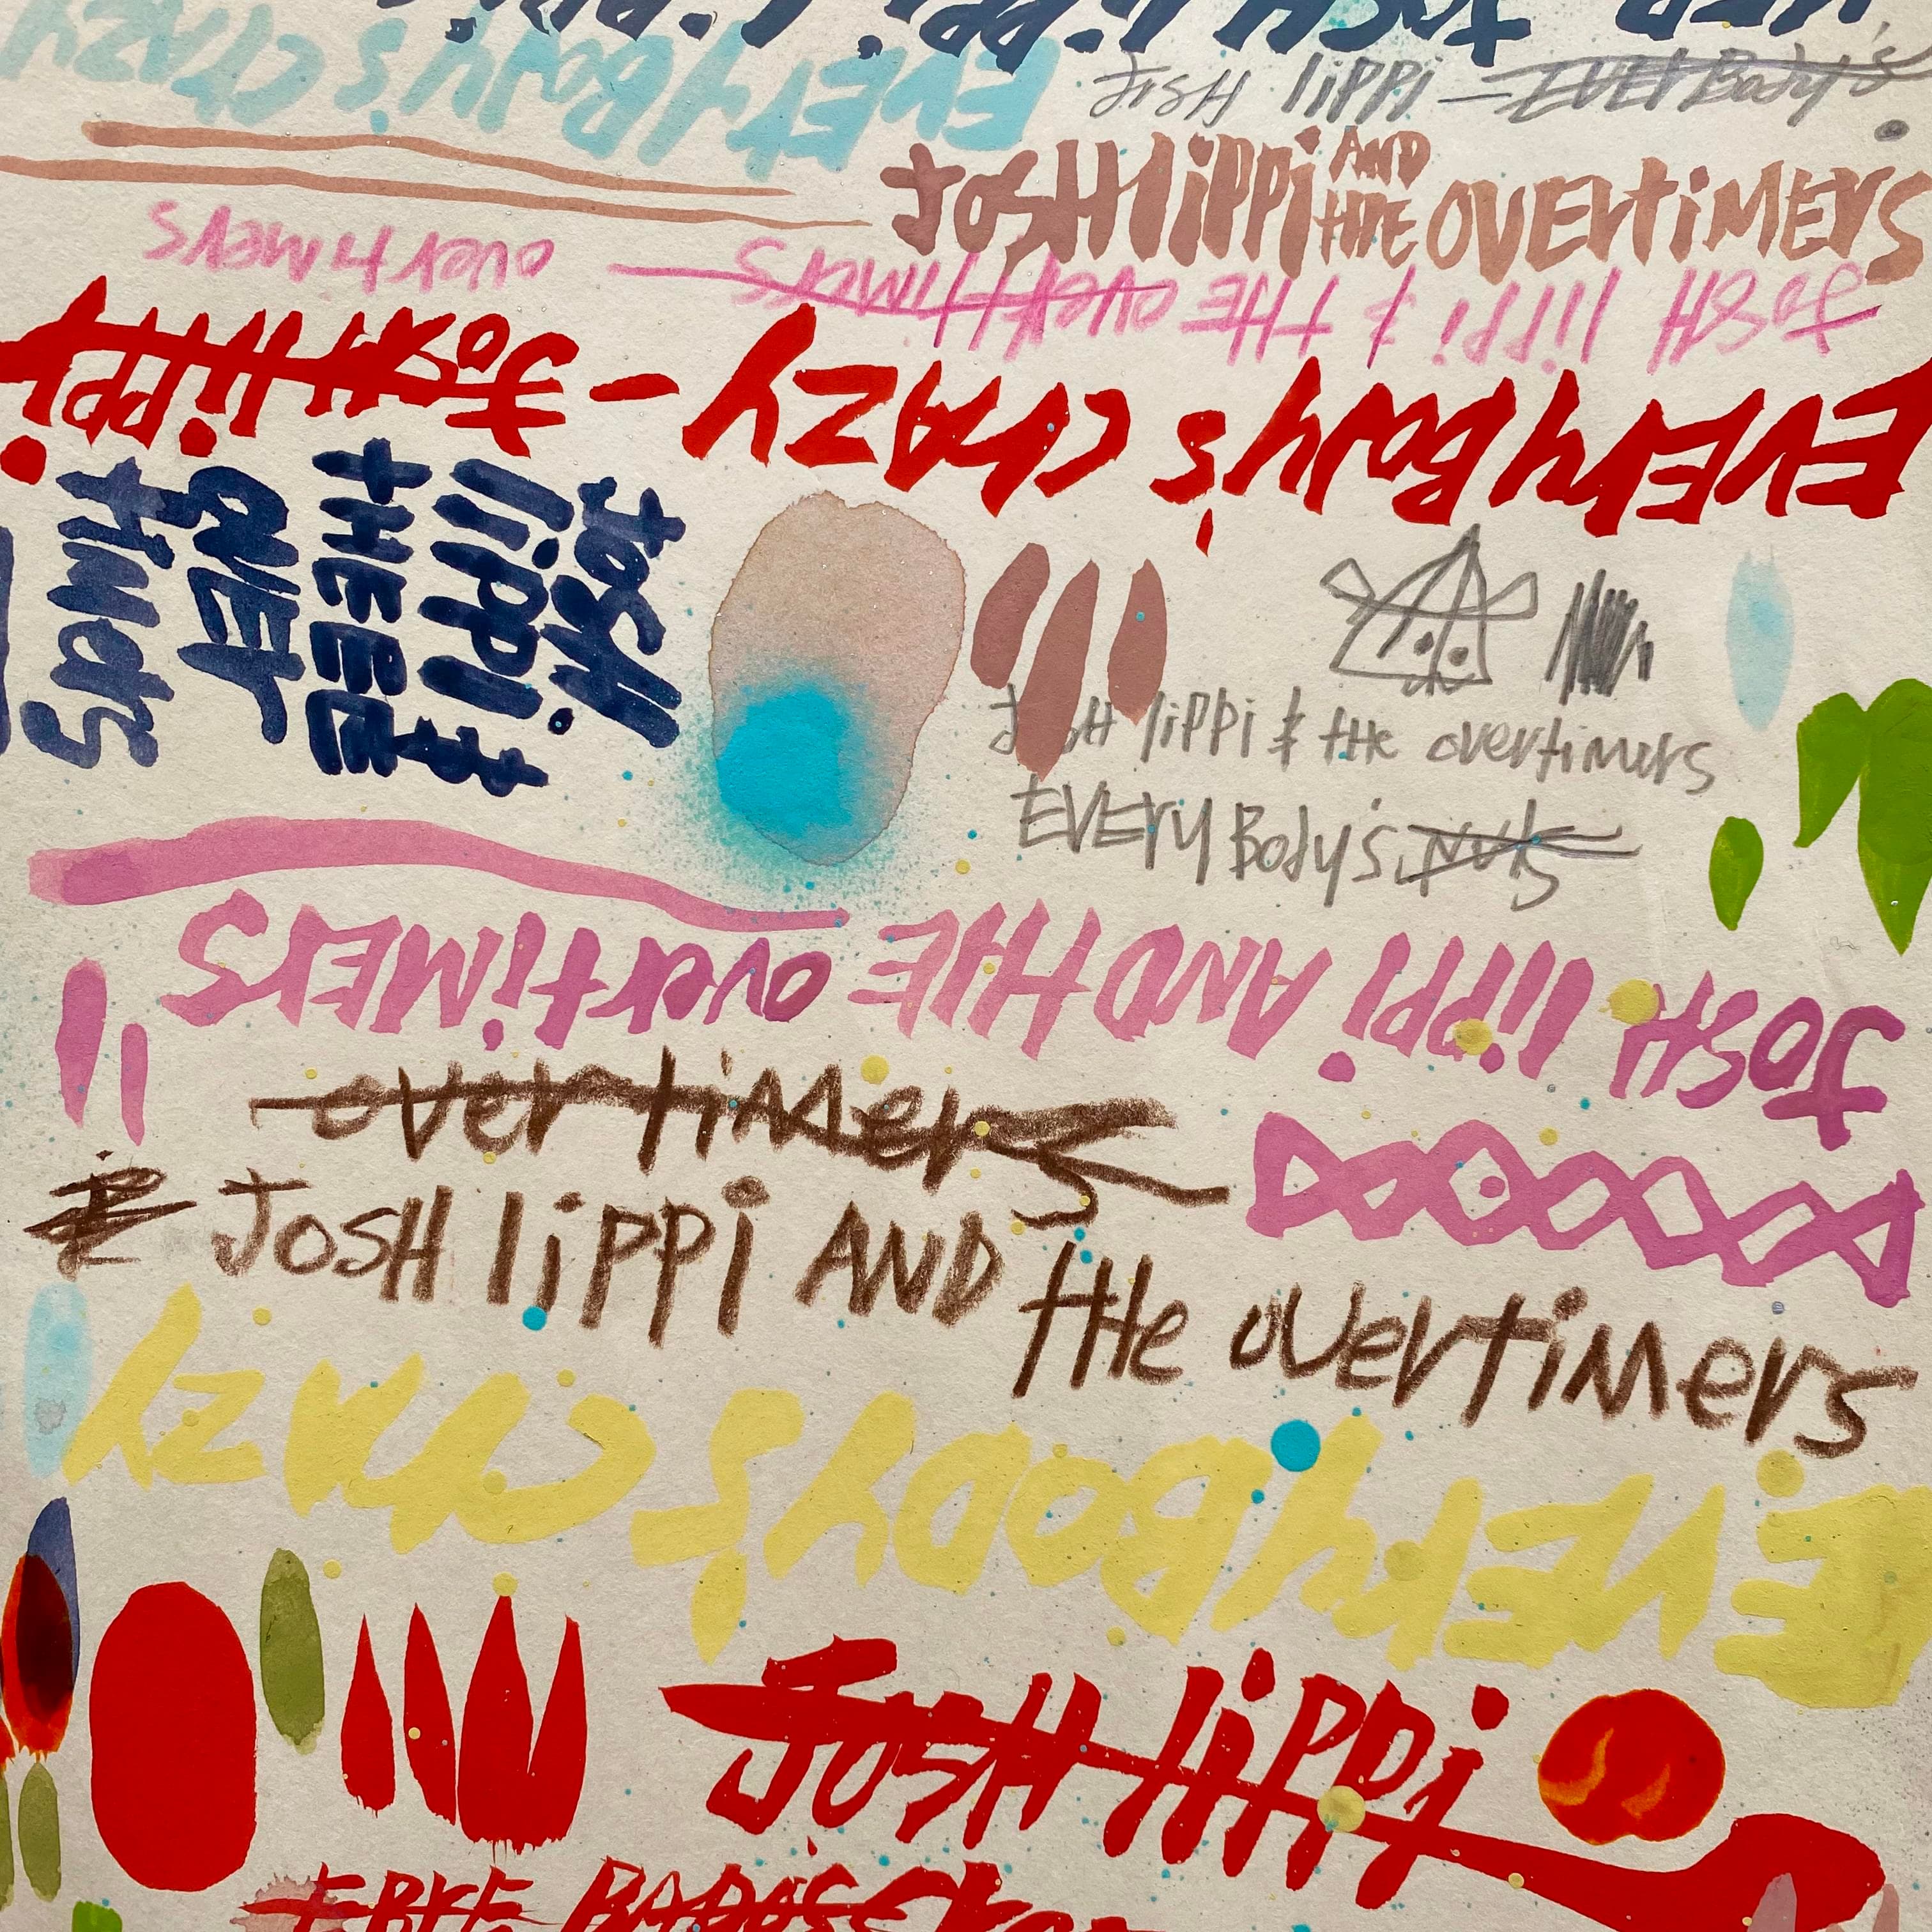 JOSH lippi
EVERYBody's CRAZY
JOSH lippi — EVERBody's
JOSH lippi AND tHE OVErtiMErs
JOSH lippi & tHE overtimers
overtimers
EVERYBody's CRAZY — JOSH lippi
JOSH
lippi &
tHEEE
OVEr
tiMers
JOSH lippi & tHe overtimers
EVERY Body's nuts
JOSH lippi AND tHE overtiMErs
overtimers
JOSH lippi AND tHe overtimers
EVERYBODY'S CRAZY
JOSH lippi